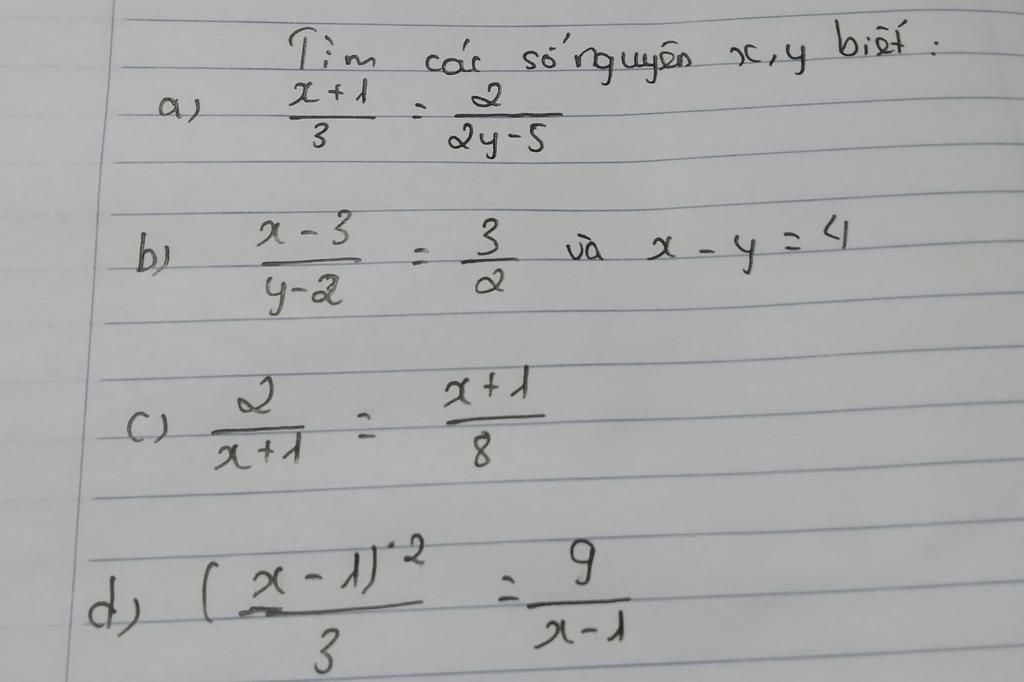 Tìm các số nguyên x, y biết :
a) \frac{x+1}{3} = \frac{2}{2y-5}
b) \frac{x-3}{y-2} = \frac{3}{2} và x - y = 4
c) \frac{2}{x+1} = \frac{x+1}{8}
d) \frac{(x-1)^{.2}}{3} = \frac{9}{x-1}